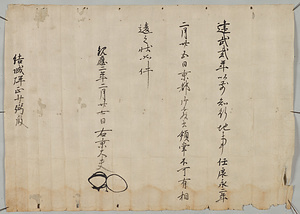 建武弐年以前知行地事任康永二年
二月廿五日京都御事書領掌不可有相
違之状如件
観應二年二月廿七日右京大夫
結城弾正少弼殿